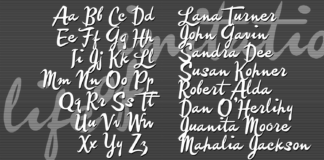 imitation
of life
Aa Bb Cc Dd
Ee Ff Gg Hh
Ii Jj Kk Ll
Mm Nn Oo Pp
Qq Rr Ss Tt
Uu Vv Ww
Xx Yy Zz
Lana Turner
John Gavin
Sandra Dee
Susan Kohner
Robert Alda
Dan O'Herlihy
Juanita Moore
Mahalia Jackson